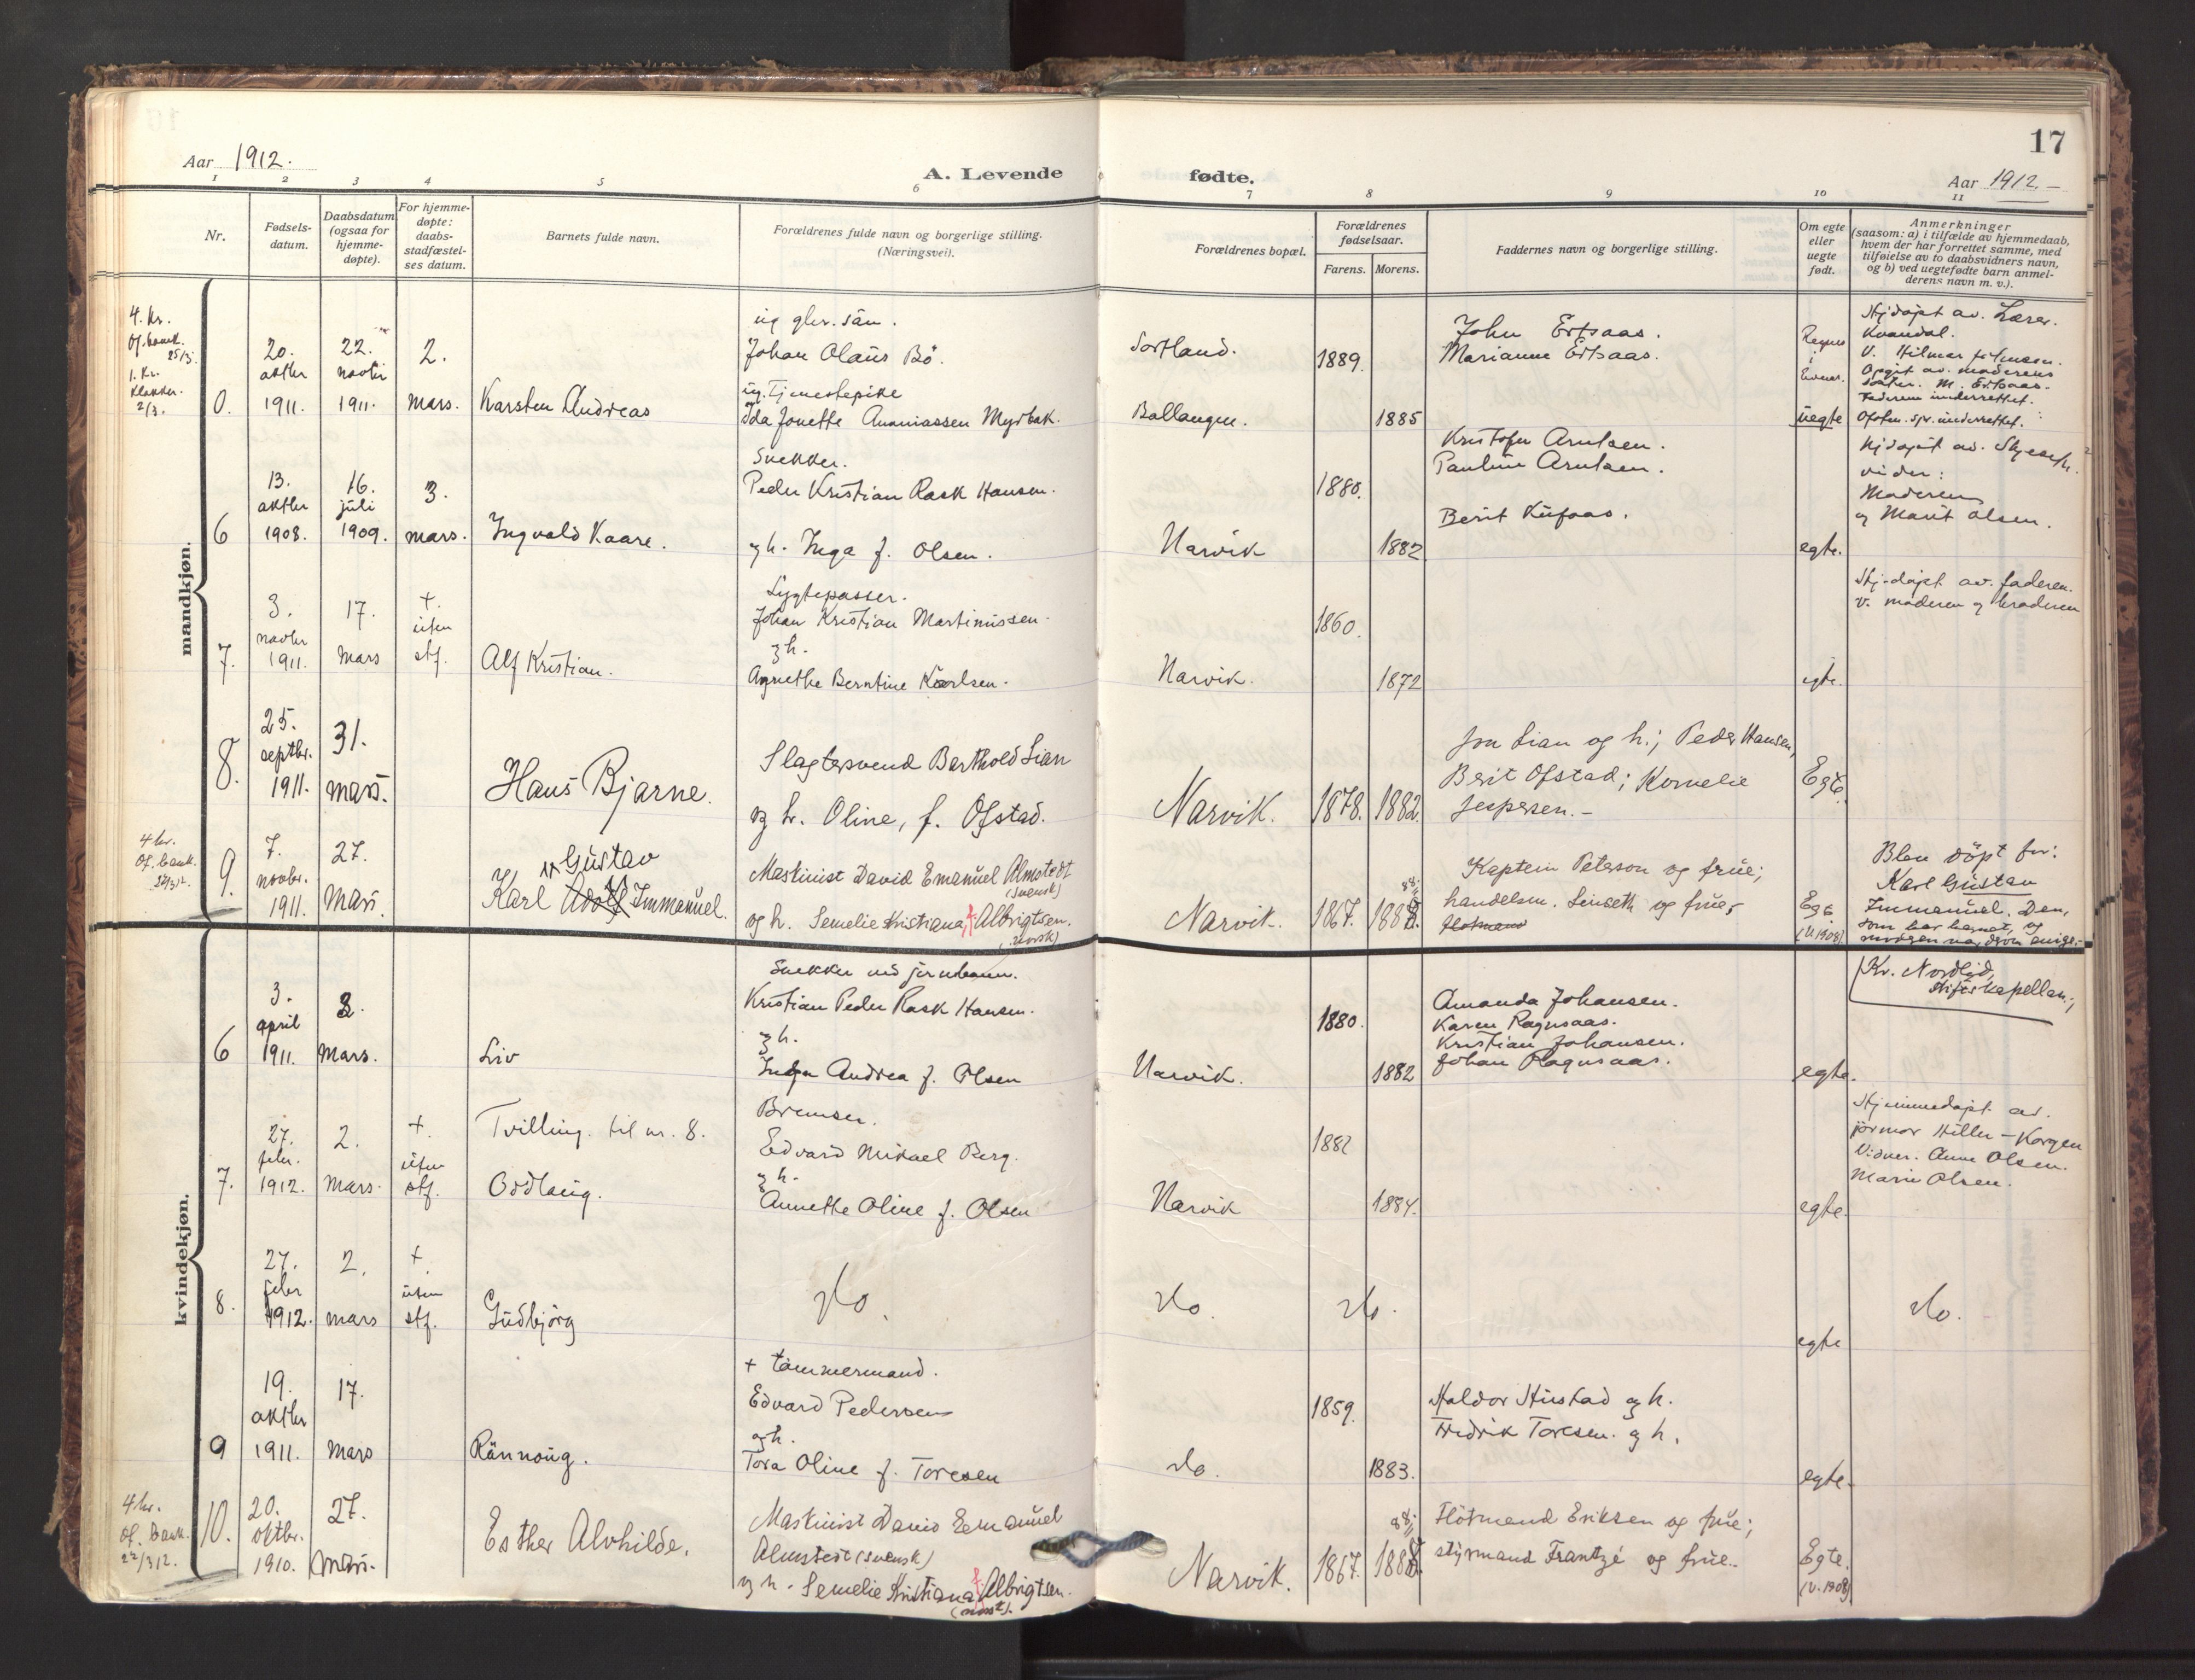 17
Aar 1912.
A. Levende fødte.
Aar 1912.
1 2 3 4 5 6 7 8 9 10 11
Nr.
Fødsels-
datum.
Daabsdatum
(ogsaa for
hjemme-
døpte).
For hjemme-
døpte:
daabs-
stadfæstel-
ses datum.
Barnets fulde navn.
Forældrenes fulde navn og borgerlige stilling.
(Næringsvei).
Forældrenes bopæl.
Forældrenes
fødselsaar.
Farens. Morens.
Faddernes navn og borgerlige stilling.
Om egte
eller
uegte
født.
Anmerkninger
(saasom: a) i tilfælde av hjemmedaab,
hvem der har forrettet samme, med
tilføielse av to daabsvidners navn,
og b) ved uegtefødte barn anmel-
derens navn m. v.).
mandkjøn.
4. kr.
Of. bank.
25/3.
1. kr.
Klokker.
2/3.
0.
20.
oktbr
1911.
22.
novbr
1911.
2.
mars.
Karsten Andreas
Johan Olaus Bö.
ug. Tjenestepike
Ida Jonette Annaniassen Myrbak.
Sortland.
Ballangen.
1889.
1885
John Ertsaas.
Marianne Ertsaas.
uegte
Hjdøpt av. Lærer.
Kvandal.
Faderen underrettet.
6
13.
oktbr
1908.
16.
juli
1909.
3.
mars.
Ingvald Kaare.
Snekker.
Peder Kristian Rask Hansen.
og h. Inga f. Olsen.
Narvik
1880.
1882
Kristofer Arntsen.
Pauline Arntsen.
Berit
egte.
Hjdøpt av.
vidner:
Moderen
og Marit Olsen.
7.
3.
novbr
1911.
17.
Mars
+.
uten
stf.
Alf Kristian.
Lygtepasser.
Johan Kristian Martinussen.
og h.
Agnethe Berntine Karlsen.
Narvik.
1860.
1872
egte.
Hj-døpt av. faderen.
v. moderen og broderen
8.
25.
septbr.
1911.
31.
mars.
Hans Bjarne.
Slagtersvend Barthold Lian
og h. Oline, f. Ofstad.
Narvik.
1878.
1882.
fru Lian og h.; Peder Hansen,
Berit Ofstad; Kornelie
Jespersen.-
Egte.
4 kr.
Of. bank.
9.
7.
novbr.
1911.
27.
Mars.
Gustav
Karl Adolf Immanuel.
Maskinist David Emanuel Almstedt
(svensk)
og h. Semelie Kristiana, f. Albrigtsen.
(norsk)
Narvik.
1867.
Kaptein Peterson og frue;
handelsm. Linseth og frue;
Egte
(V. 1908).
Blev döpt for:
Karl Gustav
Immanuel. Den,
som bar barnet, og
Kr. Nordlid,
stiftskapellan.;
kvindekjøn.
6
3.
april
1911.
3.
Mars.
Liv
Snekker ved jernbanen.
Kristian Peder Rask Hansen.
og h.
Inga Andrea f. Olsen
Narvik.
1880.
1882
Amanda Johansen.
Karen Ragnsaas.
Kristian Johansen.
Johan Ragnsaas.
egte.
7.
27.
febr.
1912.
2.
Mars.
+.
uten
stf.
Tvilling. til nr. 8.
Oddlaug.
Bremser.
Edvard Mikael Berg.
og h.
Annette Oline f. Olsen
Narvik
1882
1884.
egte.
Hjemmedøpt av.
jormor Hiller-Korgen
Vidner. Anne Olsen.
Marie Olsen.
8.
27.
febr
1912.
2.
mars
+.
uten
stf.
Gudbjörg
do.
do.
do.
egte
do.
9
19.
oktbr
1911.
17.
Mars
Rannoug.
+ tømmermand.
Edvard Pedersen
og h.
Tora Oline f. Toresen
do.
1859.
1883.
Haldor Hustad og h.
Fredrik Toresen. og h.
egte.
4 kr.
Of. bank.
22/3 12.
10.
20.
oktbr.
1910.
27.
Mars.
Esther Alvhilde.
Maskinist David Emanuel
Almstedt (svensk)
og h. Semelie Kristiana, f. Albrigtsen.
(norsk).
Narvik.
1867.
Flötmand Eriksen og frue;
styrmand Frantzé og frue.
Egte.
(V. 1908)